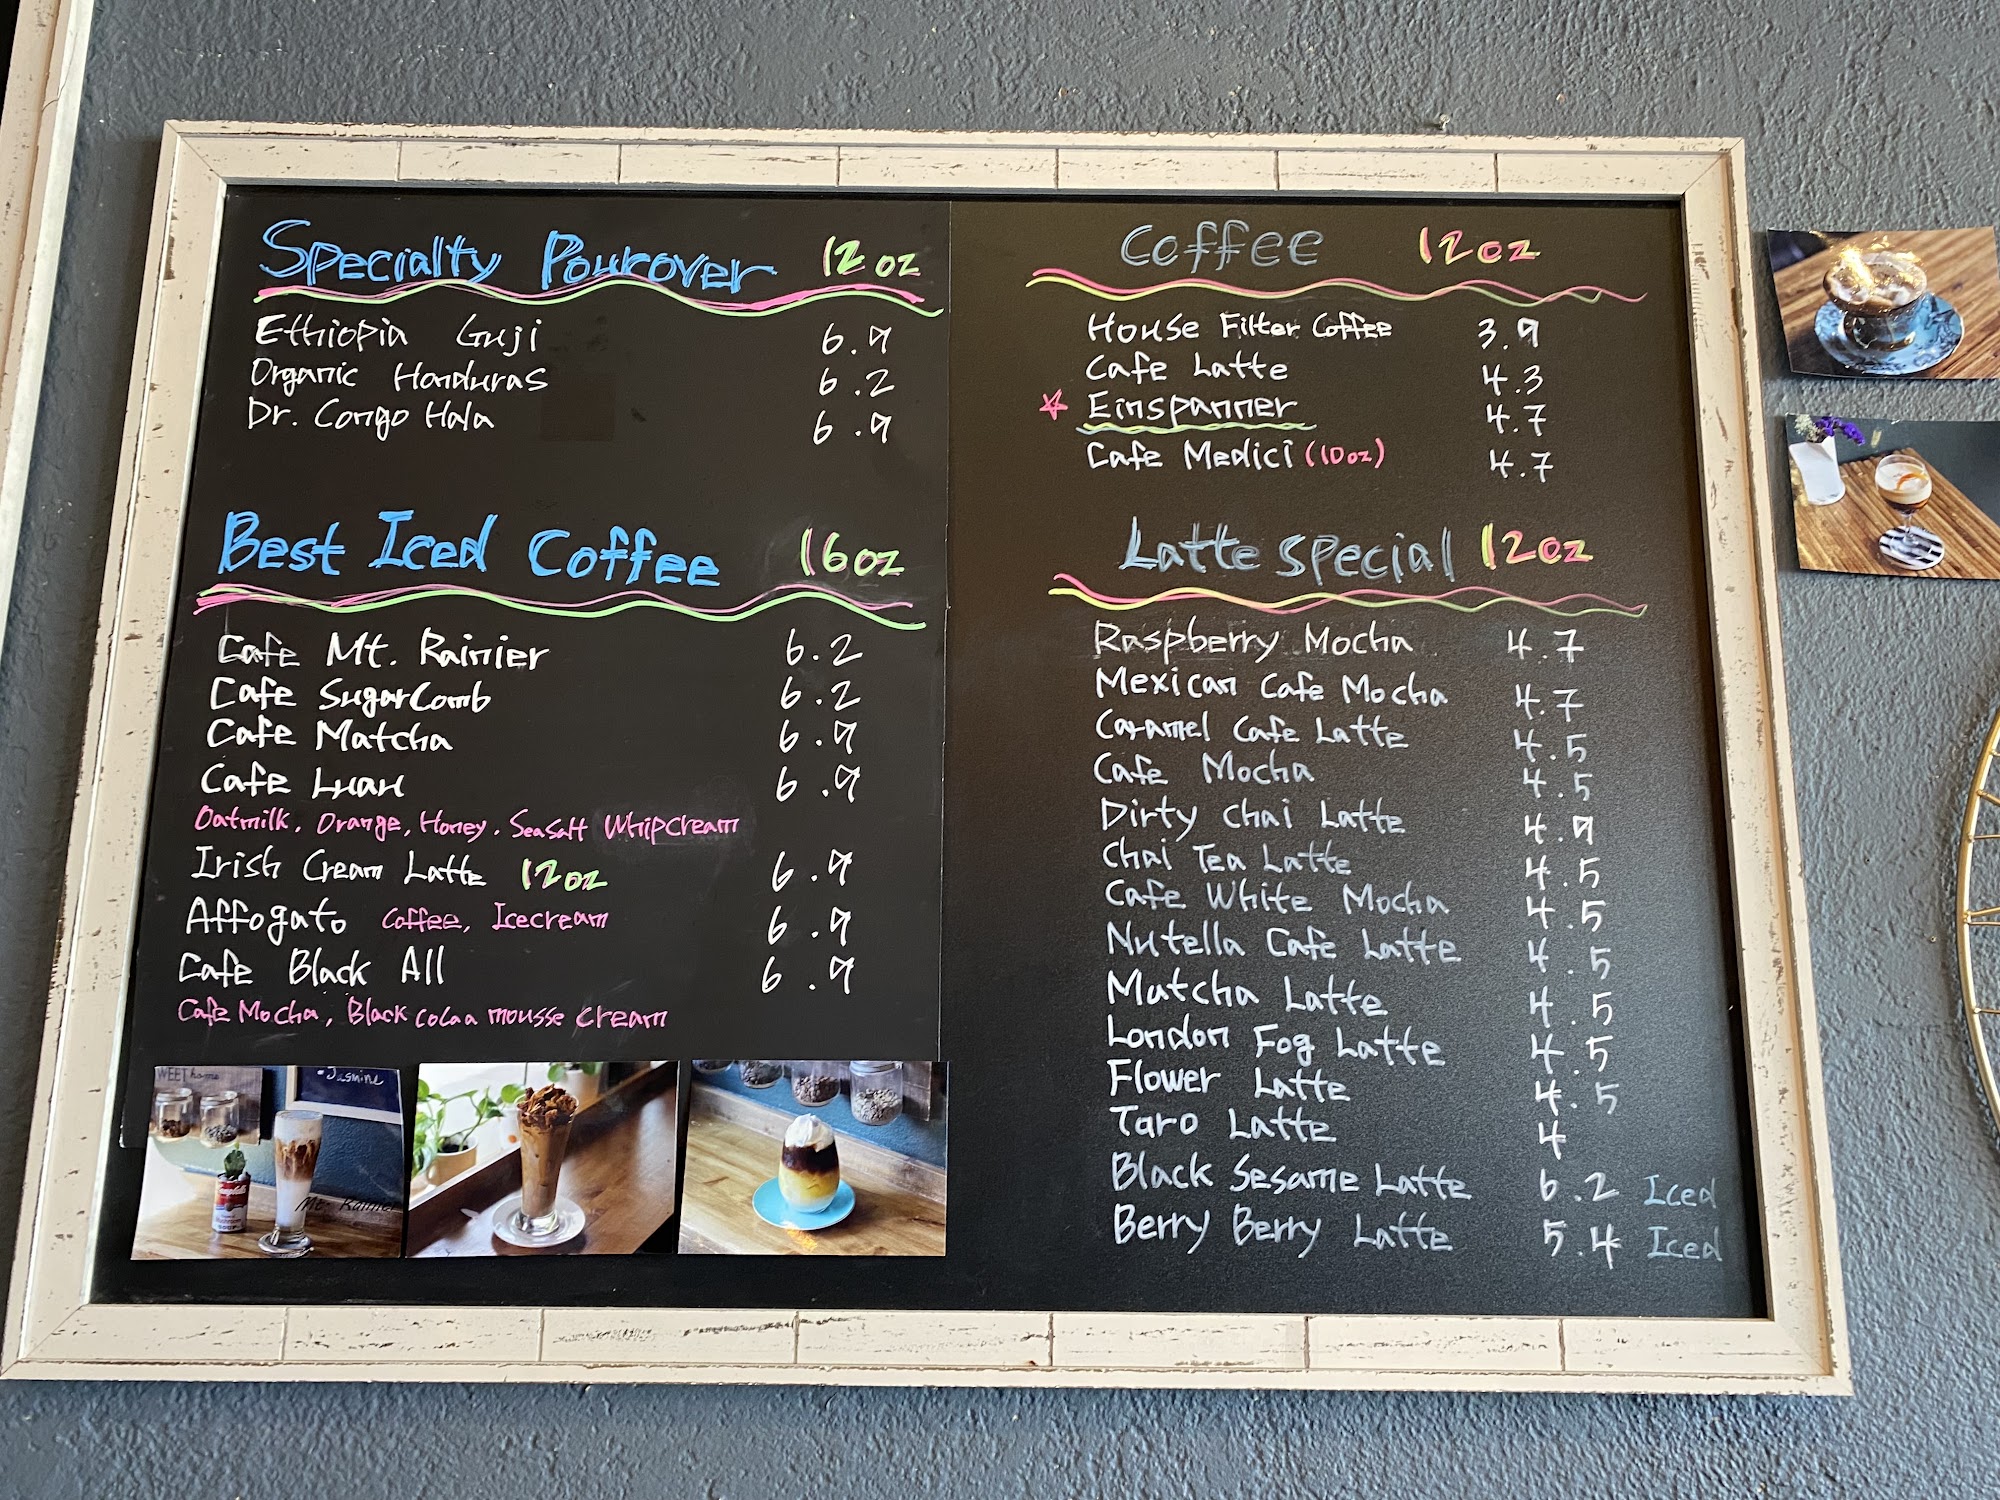 Specialty Pourover 12oz
Ethiopia Guji 6.9
Organic Honduras 6.2
Dr. Congo Hala 6.9
Best Iced Coffee 16oz
Cafe Mt. Rainier 6.2
Cafe SugarComb 6.2
Cafe Matcha 6.9
Cafe Luau 6.9
Oatmilk, Orange, Honey, Seasalt Whipcream
Irish Cream Latte 12oz 6.9
Affogato Coffee, Icecream 6.9
Cafe Black All 6.9
Cafe Mocha, Black cocaa mousse cream
WEET home
-Jasmine
Campbell's
SOUP
Mt. Rainier
Coffee 12oz
House Filter Coffee 3.9
Cafe Latte 4.3
☆ Einspanner 4.7
Cafe Medici (10oz) 4.7
Latte Special 12oz
Raspberry Mocha 4.7
Mexican Cafe Mocha 4.7
Caramel Cafe Latte 4.5
Cafe Mocha 4.5
Dirty Chai Latte 4.9
Chai Tea Latte 4.5
Cafe White Mocha 4.5
Nutella Cafe Latte 4.5
Matcha Latte 4.5
London Fog Latte 4.5
Flower Latte 4.5
Taro Latte 4
Black Sesame Latte 6.2 Iced
Berry Berry Latte 5.4 Iced